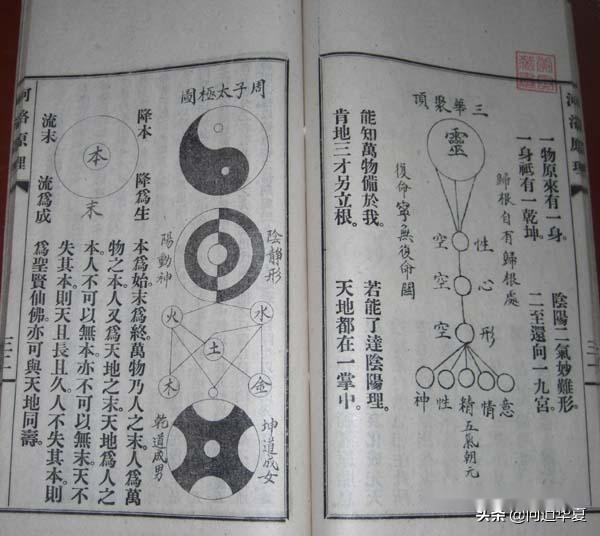 河洛原理
一物原來有一身。
一身祇有一乾坤。
陰陽二氣妙難形。
二至還向一九宮。
歸根自有歸根處
三華聚頂
靈
空 性
空 心
空 形
神 性 精 情 意
五氣朝元
復命寧無復命關
能知萬物備於我。
肯地三才另立根。
若能了達陰陽理。
天地都在一掌中。
周子太極圖
陰靜形
陽動神
火 水
土
木 金
坤道成女
乾道成男
降本 降為生
本
末
流末 流為成
本為始。末為終。萬物乃人之末。人為萬
物之本。人又為天地之末。天地為人之
本。人不可以無本。亦不可以無末。天不
失其本。則天且長且久。人不失其本。則
為聖賢仙佛。亦可與天地同壽。
河洛原理
三十二
头条 @问道华夏